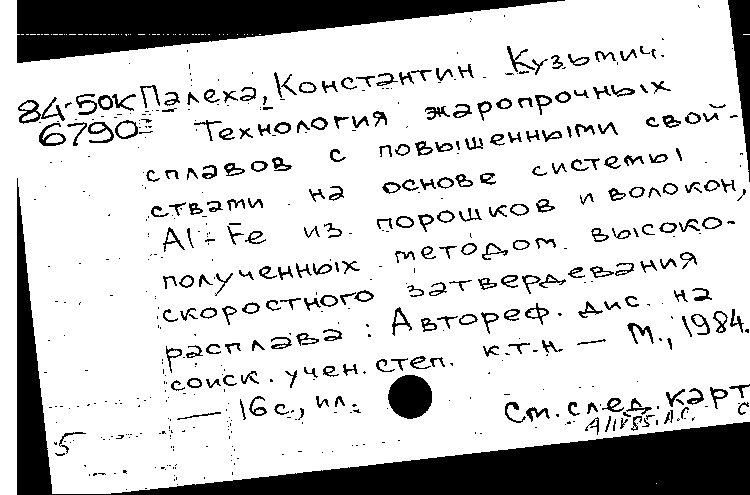 84-50к Палеха, Константин Кузьмич.
6790 = Технология жаропрочных
сплавов с повышенными свой-
ствами на основе системы
Al-Fe из порошков и волокон,
полученных методом высоко-
скоростного затвердевания
расплава : Автореф. дис. на
соиск. учен. степ. к.т.н. — М., 1984.
— 16с, ил.
См. след. карт
5